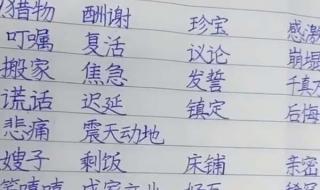 猎物 酬谢 珍宝 感激
叮嘱 复活 议论 崩塌
搬家 焦急 发誓 千真万
谎话 迟延 镇定 后悔
悲痛 震天动地
嫂子 剩饭 床铺 亲密